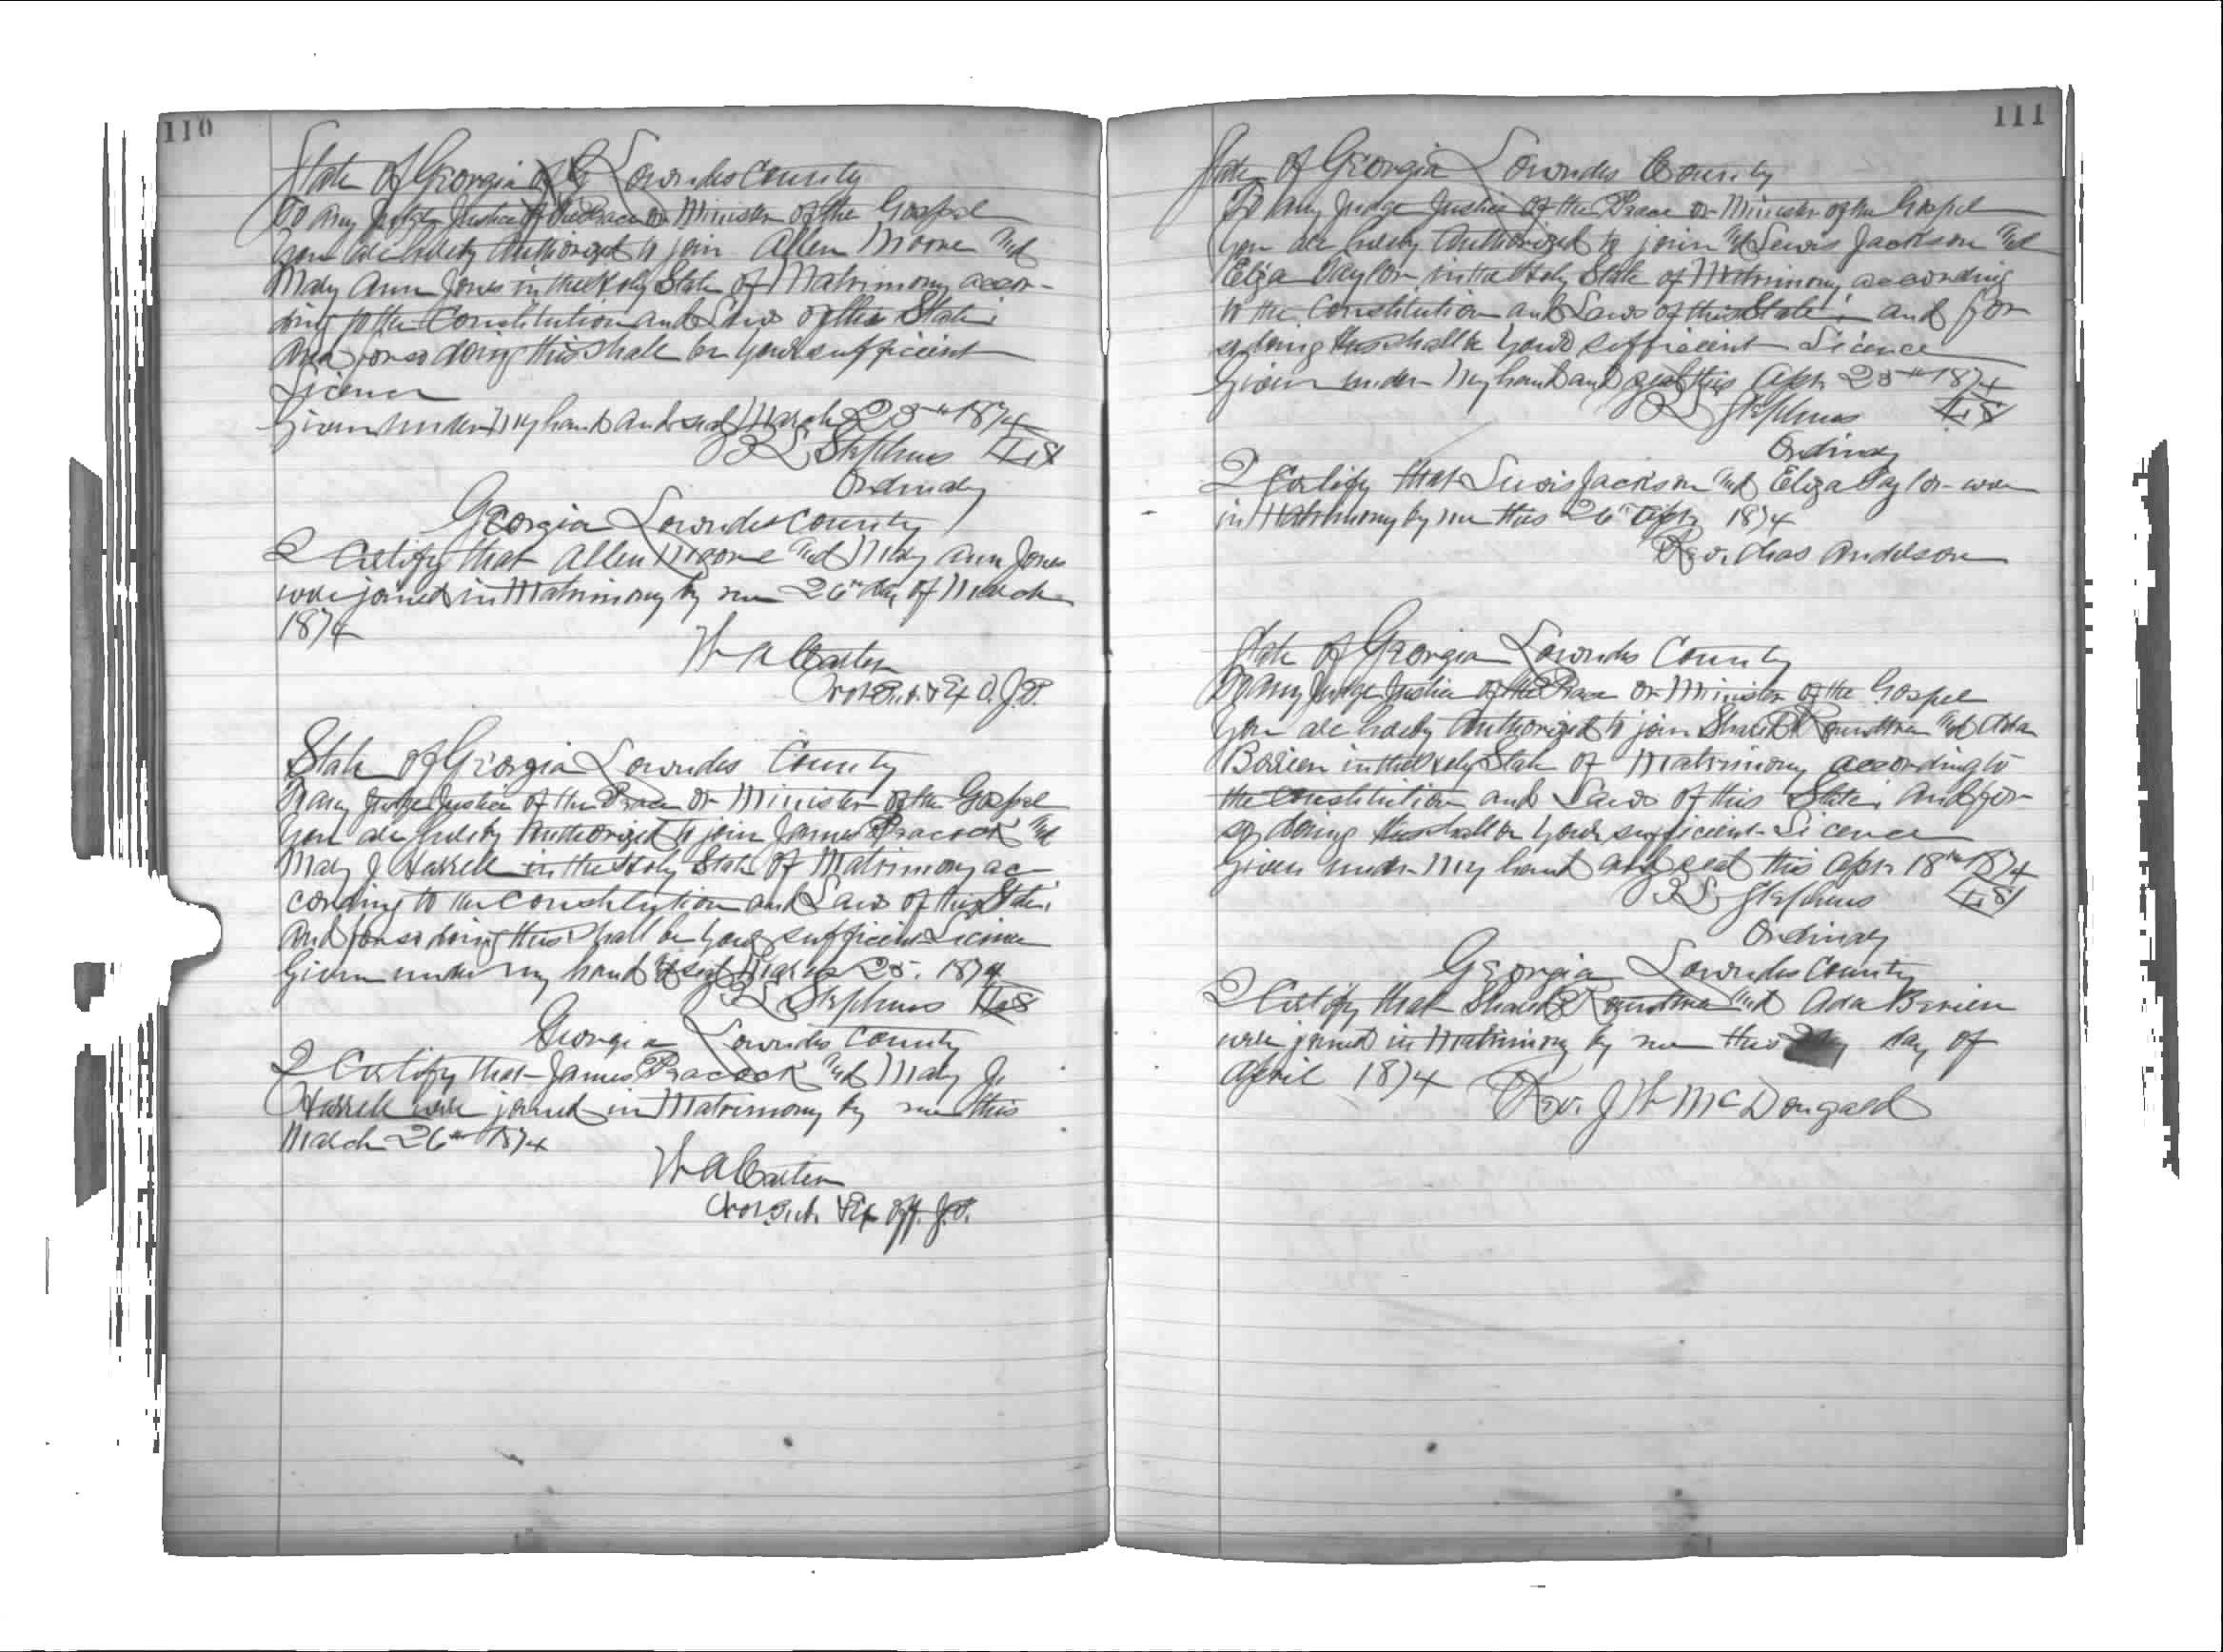 110
State of Georgia Lowndes County
To any Judge Justice of the Peace or Minister of the Gospel
You are hereby Authorized to join Allen Moore and
Mary Ann Jones in the Holy State of Matrimony accor-
ding to the Constitution and Laws of this State;
And for so doing this shall be your sufficient
Licence
Given under my hand and seal March 25th 1874
Stephens L.S
Ordinary
Georgia Lowndes County
I Certify that Allen Moore and Mary Ann Jones
were joined in Matrimony by me 26th day of March
1874
W A Carter
J.P.
State of Georgia Lowndes County
To any Judge Justice of the Peace or Minister of the Gospel
You are hereby Authorized to join James Peacock and
Mary J Harrell in the Holy State of Matrimony ac-
cording to the Constitution and Laws of this State;
And for so doing this shall be your sufficient Licence
Given under my hand & seal March 25. 1874
Stephens L.S
Georgia Lowndes County
I Certify that James Peacock and Mary J.
Harrell were joined in Matrimony by me this
March 26th 1874
W A Carter
Ex Off. J.P.
111
State of Georgia Lowndes County
To any Judge Justice of the Peace or Minister of the Gospel
You are hereby Authorized to join Lewis Jackson and
Eliza Taylor in the Holy State of Matrimony according
to the Constitution and Laws of this State; and for
so doing this shall be your sufficient Licence
Given under my hand and seal this Apr. 25th 1874
Stephens L.S
Ordinary
I Certify that Lewis Jackson and Eliza Taylor were
in Matrimony by me this 26th Apr. 1874
Rev. Chas Anderson
State of Georgia Lowndes County
To Any Judge Justice of the Peace or Minister of the Gospel
You are hereby Authorized to join Roundtree and Ada
Berrien in the Holy State of Matrimony according to
the Constitution and Laws of this State; And for
so doing this shall be your sufficient Licence
Given under my hand and seal this Apr. 18th 1874
Stephens L.S
Ordinary
Georgia Lowndes County
I Certify that Roundtree and Ada Berrien
were joined in Matrimony by me this day of
April 1874
Rev. J W McDougald